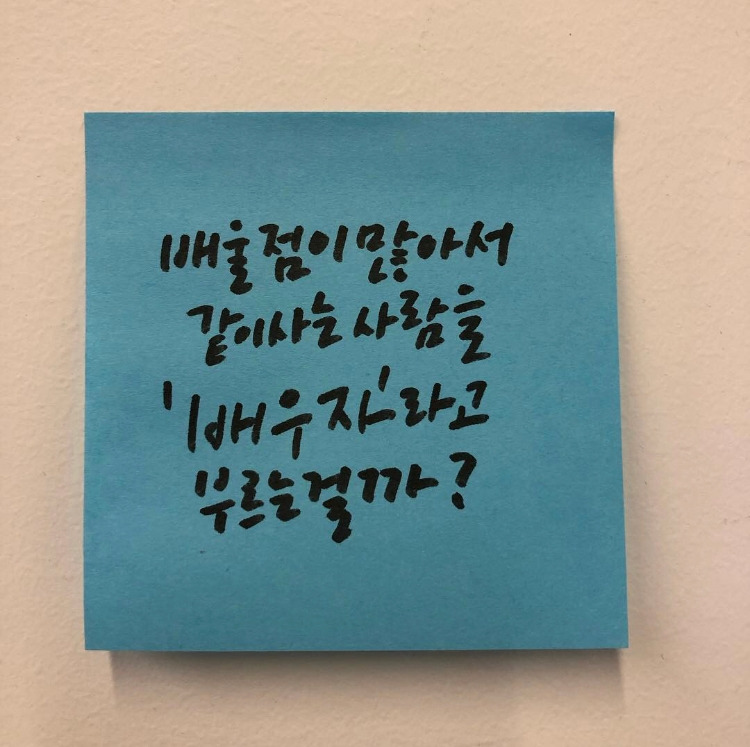 배울점이 많아서
같이사는 사람을
'배우자'라고
부르는걸까?